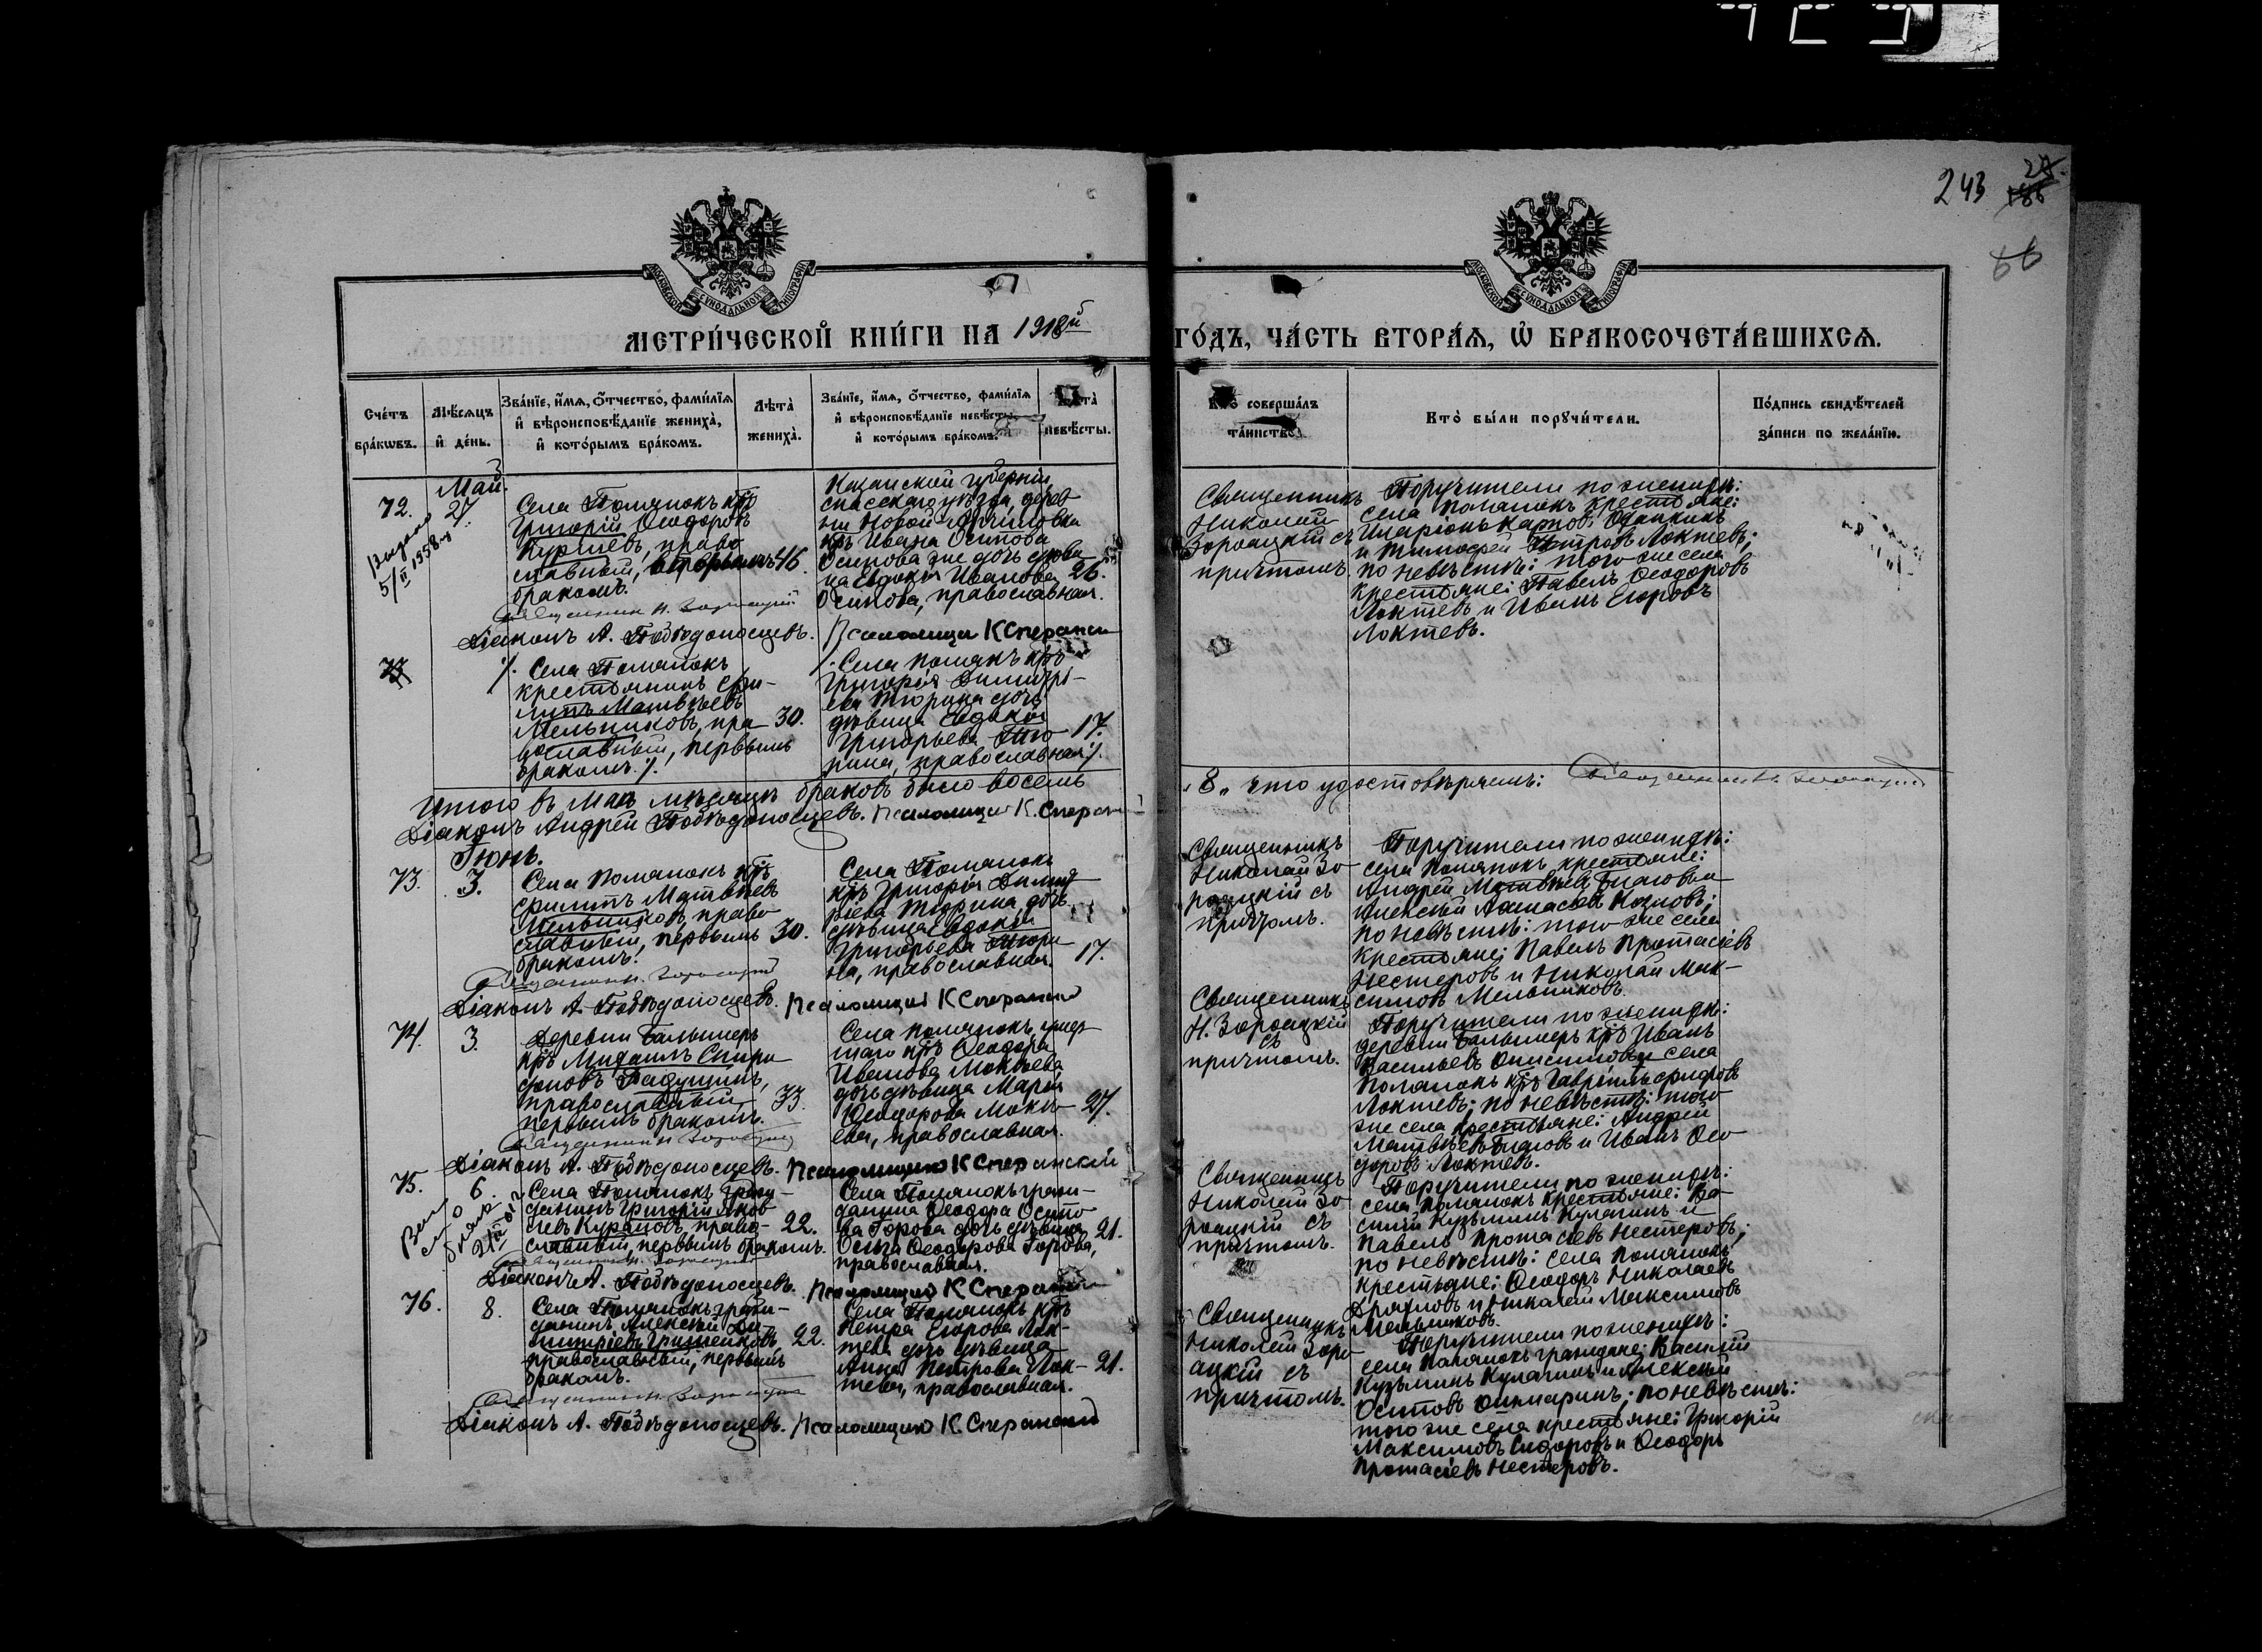 243
66
МОСКОВСКОЙ СѴНОДАЛЬНОЙ ТИПОГРАФІИ
МОСКОВСКОЙ СѴНОДАЛЬНОЙ ТИПОГРАФІИ
МЕТРИ́ЧЕСКОЙ КНИ́ГИ НА 1918й ГО́ДЪ, ЧА́СТЬ ВТОРА́Я, Ѡ҆ БРАКОСОЧЕТА́ВШИХСЯ.
Сче́тъ бра́кѡвъ.
Мѣ́сяцъ и҆ де́нь.
Зва́нїе, и҆́мя, ѻ҆́тчество, фами́лїя и҆ вѣроисповѣ́данїе жениха̀, и҆ кото́рымъ бра́комъ.
Лѣта̀ жениха̀.
Зва́нїе, и҆́мя, ѻ҆́тчество, фами́лїя и҆ вѣроисповѣ́данїе невѣ́сты, и҆ кото́рымъ бра́комъ.
невѣ́сты.
Кто̀ соверша́лъ та́инство.
Кто̀ бы́ли порꙋчи́тели.
По́дпись свидѣ́телей за́писи по жела́нїю.
Май.
72.
27.
Выдано
5/II 1958 г
Села Полянокъ кр.
Григорій Ѳеодоровъ
Куршевъ, право
славный, вторымъ 46.
бракомъ.
Казанской губерніи,
Спасскаго уѣзда, дерев
ни Новой
кр. Ивана Осипова
Осипова же дочь вдова
Иванова 26.
Осипова, православная.
Священникъ
Николай
Зороацкій съ
причтомъ.
Поручители по женихѣ:
села Полянокъ крестьяне:
Иларіонъ Карповъ
и Тимофей Петровъ Локтевъ;
по невѣстѣ: того же села
крестьяне: Павелъ Ѳеодоровъ
Локтевъ и Иванъ Егоровъ
Локтевъ.
Священникъ Н. Зороацкій
Діаконъ А. Побѣдоносцевъ. Псаломщикъ К Сперанскі
Села Полянокъ
крестьянинъ Фи-
липъ Матвѣевъ
Мельниковъ, пра- 30.
вославный, первымъ
бракомъ.
Села Полянъ кр.
Григорія Димитрі-
ева Тюрина дочь
дѣвица Евдокія
Григорьева Тю- 17.
рина, православная
Итого въ Маѣ мѣсяцѣ браковъ было восемь
„8„ что удостовѣряемъ: Священникъ Н. Зороацкій
Діаконъ Андрей Побѣдоносцевъ. Псаломщикъ К. Сперан
Іюнь.
73.
3.
Села Полянокъ кр.
Филипъ Матвѣевъ
Мельниковъ, право
славный, первымъ 30.
бракомъ.
Села Полянокъ
кр. Григорія Димит
ріева Тюрина дочь
дѣвица Евдокія
Григорьева Тюри
на, православная. 17.
Священникъ
Николай Зо
роацкій съ
причтомъ.
Поручители по женихѣ:
села Полянокъ крестьяне:
Андрей Матвѣевъ
Алексѣй Аѳанасьевъ Козловъ;
по невѣстѣ: того же села
крестьяне: Павелъ Протасіевъ
Нестеровъ и Николай Мак-
симовъ Мельниковъ.
Священникъ Н. Зороацкій
Діаконъ А. Побѣдоносцевъ. Псаломщикъ К Сперанскій
74.
3.
Деревни Балымеръ
кр. Михаилъ Спири
доновъ Бадушинъ,
православный 33.
первымъ бракомъ.
Села Полянокъ умер
шаго кр. Ѳеодора
Иванова Мокѣева
дочь дѣвица Марія
Ѳеодорова Мокѣ- 27.
ева, православная.
Священникъ
Н. Зороацкій
съ
причтомъ.
Поручители по женихѣ:
деревни Балымеръ кр. Иванъ
Васильевъ Онисимовъ и села
Полянокъ кр. Гавріилъ
Локтевъ; по невѣстѣ: того
же села крестьяне: Андрей
Матвѣевъ и Иванъ Ѳео
доровъ Локтевъ.
Священникъ Н. Зороацкій
Діаконъ А. Побѣдоносцевъ. Псаломщикъ К Сперанскій
75.
6.
Села Полянокъ граж-
данинъ Григорій Яков
левъ Кулаковъ, право- 22.
славный, первымъ бракомъ.
Села Полянокъ граж-
данина Ѳеодора Осипо
ва Горова дочь дѣвица 21.
Ольга Ѳеодорова Горова,
православная.
Священникъ
Николай Зо
роацкій съ
причтомъ.
Поручители по женихѣ:
села Полянокъ крестьяне: Ва-
силій Кузьминъ Кулагинъ и
Павелъ Протасіевъ Нестеровъ;
по невѣстѣ: села Полянокъ
крестьяне: Ѳеодоръ Николаевъ
Дряхловъ и Николай Максимовъ
Мельниковъ.
Священникъ Н. Зороацкій
Діаконъ А. Побѣдоносцевъ. Псаломщикъ К Сперанскій
76.
8.
Села Полянокъ граж-
данинъ Алексѣй Ди-
митріевъ Гришенковъ, 22.
православный, первымъ
бракомъ.
Села Полянокъ кр.
Петра Егорова Лок-
тева дочь дѣвица
Анна Петрова Лок- 21.
тева, православная.
Священникъ
Николай Зоро
ацкій съ
причтомъ.
Поручители по женихѣ:
села Полянокъ граждане: Василій
Кузьминъ Кулагинъ и Алексѣй
Осиповъ; по невѣстѣ:
того же села крестьяне: Григорій
Максимовъ Сидоровъ и Ѳеодоръ
Протасіевъ Нестеровъ.
Священникъ Н. Зороацкій
Діаконъ А. Побѣдоносцевъ. Псаломщикъ К. Сперанскій